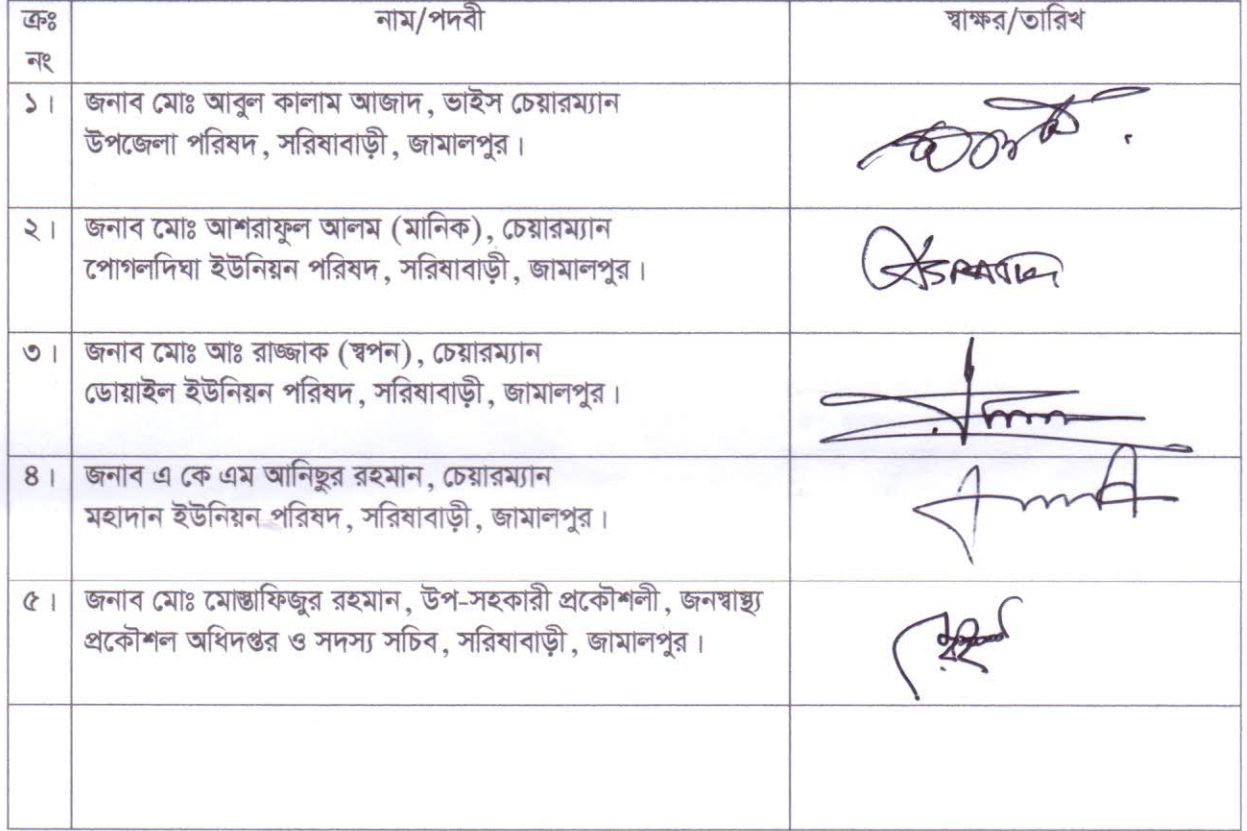 ক্রঃ নং নাম/পদবী স্বাক্ষর/তারিখ
১। জনাব মোঃ আবুল কালাম আজাদ, ভাইস চেয়ারম্যান
উপজেলা পরিষদ, সরিষাবাড়ী, জামালপুর।
২। জনাব মোঃ আশরাফুল আলম (মানিক), চেয়ারম্যান
পোগলদিঘা ইউনিয়ন পরিষদ, সরিষাবাড়ী, জামালপুর।
৩। জনাব মোঃ আঃ রাজ্জাক (স্বপন), চেয়ারম্যান
ডোয়াইল ইউনিয়ন পরিষদ, সরিষাবাড়ী, জামালপুর।
৪। জনাব এ কে এম আনিছুর রহমান, চেয়ারম্যান
মহাদান ইউনিয়ন পরিষদ, সরিষাবাড়ী, জামালপুর।
৫। জনাব মোঃ মোস্তাফিজুর রহমান, উপ-সহকারী প্রকৌশলী, জনস্বাস্থ্য
প্রকৌশল অধিদপ্তর ও সদস্য সচিব, সরিষাবাড়ী, জামালপুর।